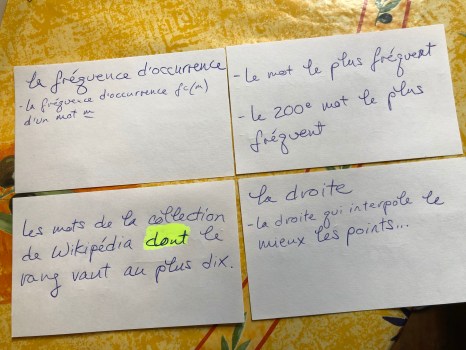 la fréquence d'occurrence
- la fréquence d'occurrence fc(m)
d'un mot m
- le mot le plus fréquent
- le 200e mot le plus
fréquent
Les mots de la collection
de Wikipédia dont le
rang vaut au plus dix.
la droite
- la droite qui interpole le
mieux les points...